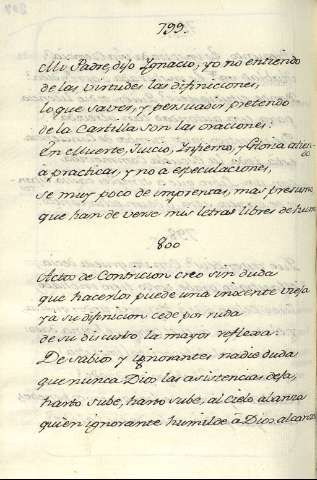 799.
Mi Padre, dijo Ygnacio, yo no entiendo
de las virtudes las difiniciones,
lo que saver, y persuadir pretendo
de la Cartilla son las oraciones:
En Muerte, Juicio, Infierno, y Gloria atiendo
a practicas, y no a especulaciones,
se muy poco de imprentas, mas presumo
que han de verse mis letras libres de humo
800
Actos de Contricion creo sin duda
que hacerlos puede una inocente vieja
y à su difinicion cede por ruda
de su discurso la mayor reflexa:
De sabios y ignorantes nadie duda
que nunca Dios las asistencias deja,
harto sube, harto sube, al Cielo alcanza
quien ignorante humilde à Dios alcanza